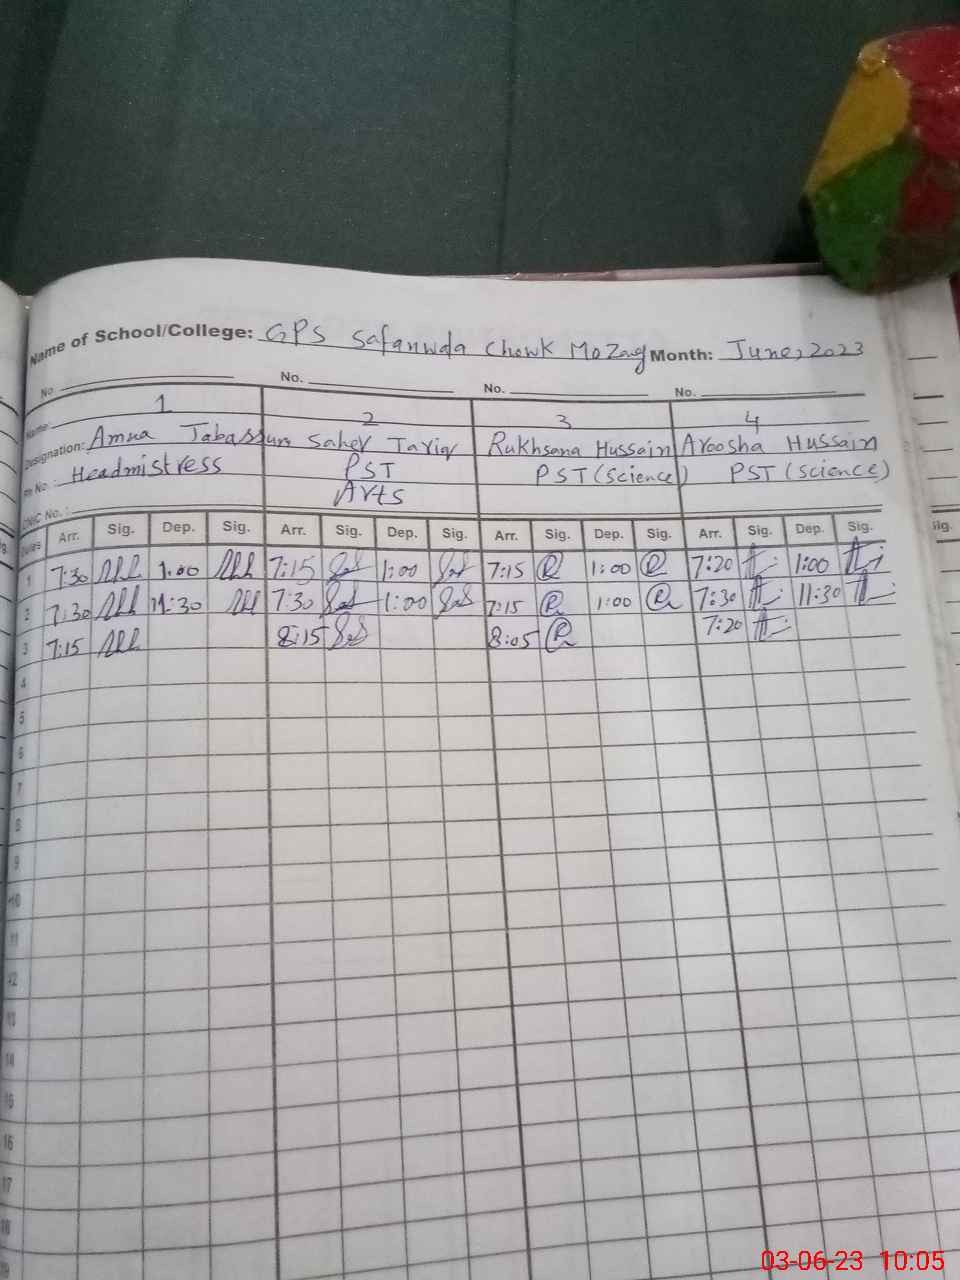 Name of School/College: GPS Safanwala Chowk Mozang Month: June, 2023
No. No. No. No.
Name: 1 2 3 4
Designation: Amna Tabassum Saher Tariq Rukhsana Hussain Aroosha Hussain
Ph No.: Headmistress PST PST (Science) PST (Science)
CNIC No.: Arts
Dates Arr. Sig. Dep. Sig. Arr. Sig. Dep. Sig. Arr. Sig. Dep. Sig. Arr. Sig. Dep. Sig.
1 7:30 1:00 7:15 1:00 7:15 1:00 7:20 1:00
2 7:30 11:30 7:30 1:00 7:15 1:00 7:30 11:30
3 7:15 8:15 8:05 7:20
4
5
6
7
8
9
10
11
12
13
14
15
16
17
18
03-06-23 10:05